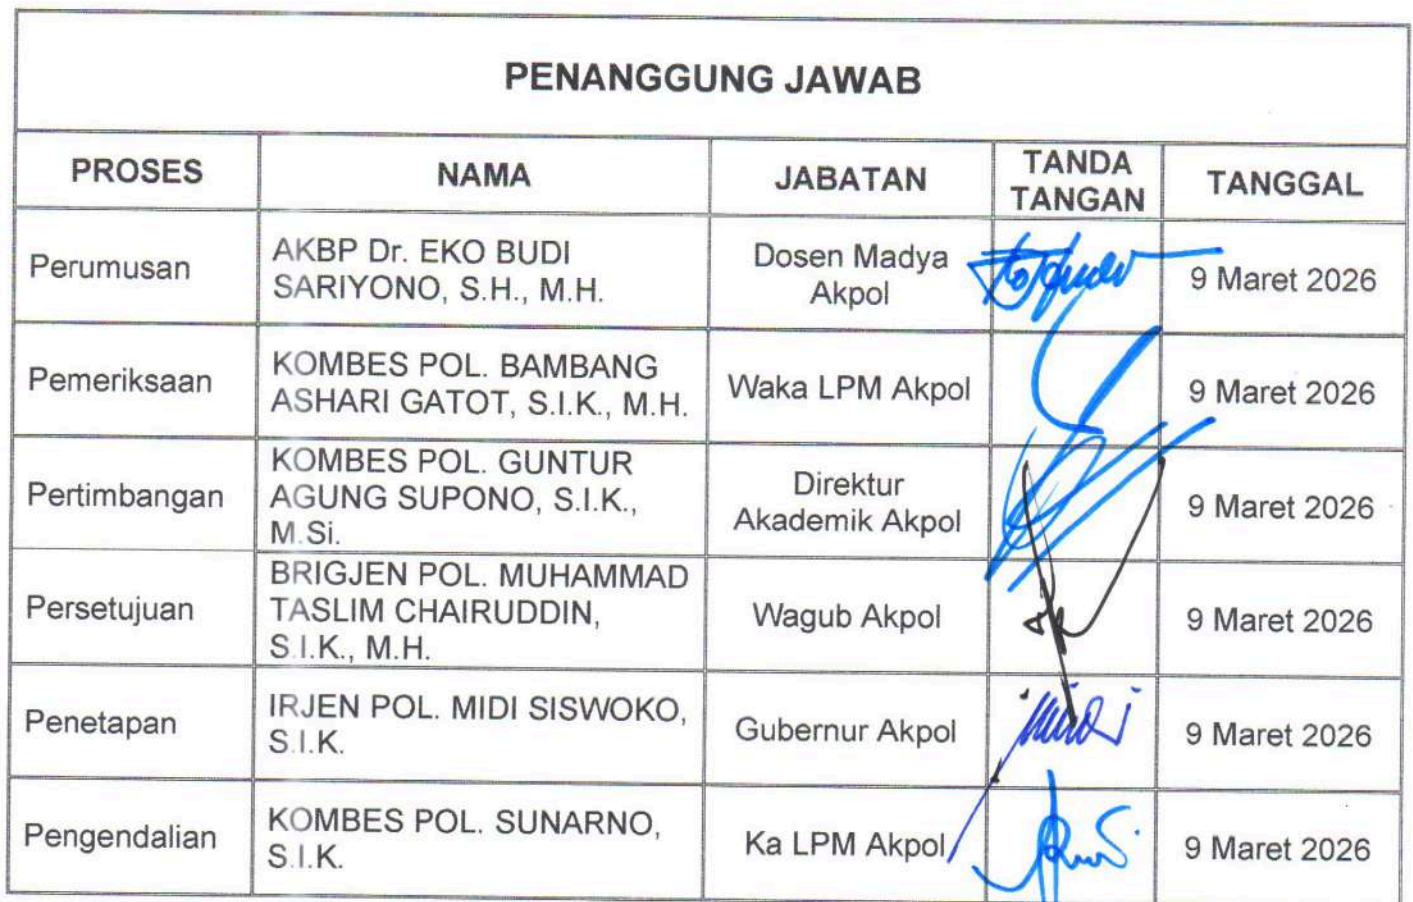 PENANGGUNG JAWAB
PROSES
NAMA
JABATAN
TANDA
TANGAN
TANGGAL
Perumusan
AKBP Dr. EKO BUDI
SARIYONO, S.H., M.H.
Dosen Madya
Akpol
9 Maret 2026
Pemeriksaan
KOMBES POL. BAMBANG
ASHARI GATOT, S.I.K., M.H.
Waka LPM Akpol
9 Maret 2026
Pertimbangan
KOMBES POL. GUNTUR
AGUNG SUPONO, S.I.K.,
M.Si.
Direktur
Akademik Akpol
9 Maret 2026
Persetujuan
BRIGJEN POL. MUHAMMAD
TASLIM CHAIRUDDIN,
S.I.K., M.H.
Wagub Akpol
9 Maret 2026
Penetapan
IRJEN POL. MIDI SISWOKO,
S.I.K.
Gubernur Akpol
9 Maret 2026
Pengendalian
KOMBES POL. SUNARNO,
S.I.K.
Ka LPM Akpol
9 Maret 2026